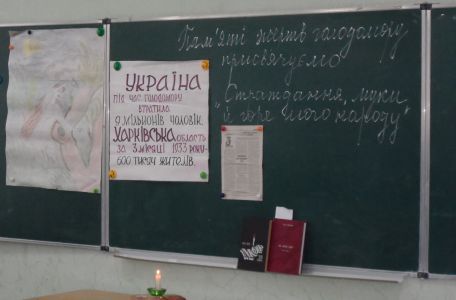 УКРАЇНА
ПІД ЧАС ГОЛОДОМОРУ
ВТРАТИЛА
9 МІЛЬЙОНІВ ЧОЛОВІК.
ХАРКІВСЬКА ОБЛАСТЬ
ЗА 3 МІСЯЦІ 1933 РОКУ-
600 ТИСЯЧ ЖИТЕЛІВ.
Пам'яті жертв голодомору
присвячуємо
„Страждання, муки
й горе мого народу"